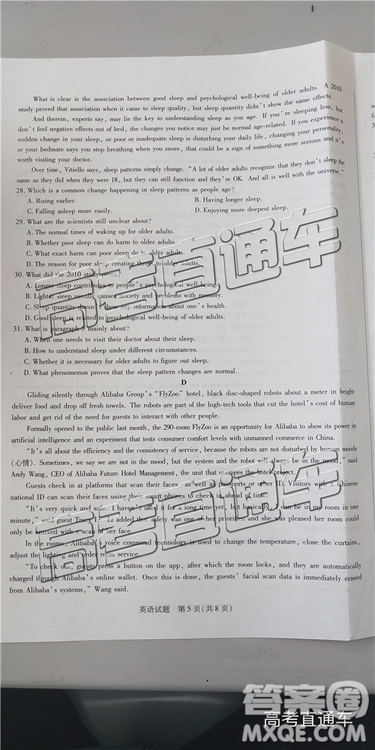 What is clear is the association between good sleep and psychological well-being of older adults. A 2010
study proved that association when it came to sleep quality, but sleep quantity didn't show the same effects.
And therein, experts say, may lie the key to understanding sleep as you age. If you're sleeping less, but
don't feel negative effects out of bed, the changes you notice may just be normal age-related. If you experience a
sudden change in your sleep, or poor or inadequate sleep is disturbing your daily life, changing your personality,
or your bedmate says you stop breathing when you snore, that could be a sign of something more serious and it's
worth visiting your doctor.
Over time, Vitiello says, sleep patterns simply change. "A lot of older adults recognize that they don't sleep the
same as they did when they were 18, but they can still function and they're OK. And all is well with the universe."
28. Which is a common change happening in sleep patterns as people age?
A. Rising earlier. B. Having longer sleep.
C. Falling asleep more easily. D. Enjoying more deepest sleep.
29. What are the scientists still unclear about?
A. The normal times of waking up for older adults.
B. Whether poor sleep can do harm to older adults.
C. What exact harm can poor sleep do to older adults.
D. The reason for poor sleep creating things to older adults.
30. What did the 2010 study
A. Longer sleep contributes to people's psychological well-being.
B. Lighter sleep mostly causes anxiety and problems with memory.
C. Sleep quantity information about one's health.
D. Good sleep is related to psychological well-being of older adults.
31. What is paragraph mainly about?
A. When one needs to visit their doctor about their sleep.
B. How to understand sleep under different circumstances.
C. Whether it is necessary for older adults to figure out sleep.
D. What phenomenon proves that the sleep pattern changes are normal.
D
Gliding silently through Alibaba Group's "FlyZoo" hotel, black disc-shaped robots about a meter in height
deliver food and drop off fresh towels. The robots are part of the high-tech tools that cut the hotel's cost of human
labor and get rid of the need for guests to interact with other people.
Formally opened to the public last month, the 290-room FlyZoo is an opportunity for Alibaba to show its power in
artificial intelligence and an experiment that tests consumer comfort levels with unmanned commerce in China.
"It's all about the efficiency and the consistency of service, because the robots are not disturbed by human moods
(心情). Sometimes, we say we are not in the mood, but the system and the robot will always be in the mood," said
Andy Wang, CEO of Alibaba Future Hotel Management, the unit that manages the hotel project.
Guests check in at platforms that scan their faces, as well as passports or other ID. Visitors with a Chinese
national ID can scan their faces using their smart phones to check in ahead of time.
"It's very quick and safe. I haven't used it for a long time yet, but basically I can be in my room in one
minute," said guest Tracy Li, added the safety was one of her priorities and she was pleased her room could
only be entered with a scan of her face.
In the rooms, Alibaba's voice command technology is used to change the temperature, close the curtains,
adjust the lighting and order room service.
"To check out, guests press a button on the app, after which the room locks, and they are automatically
charged through Alibaba's online wallet. Once this is done, the guests' facial scan data is immediately erased
from Alibaba's systems," Wang said.
英语试题 第5页(共8页)
高考直通车
高考直通车
高考直通车
答案圈
MXQE.COM